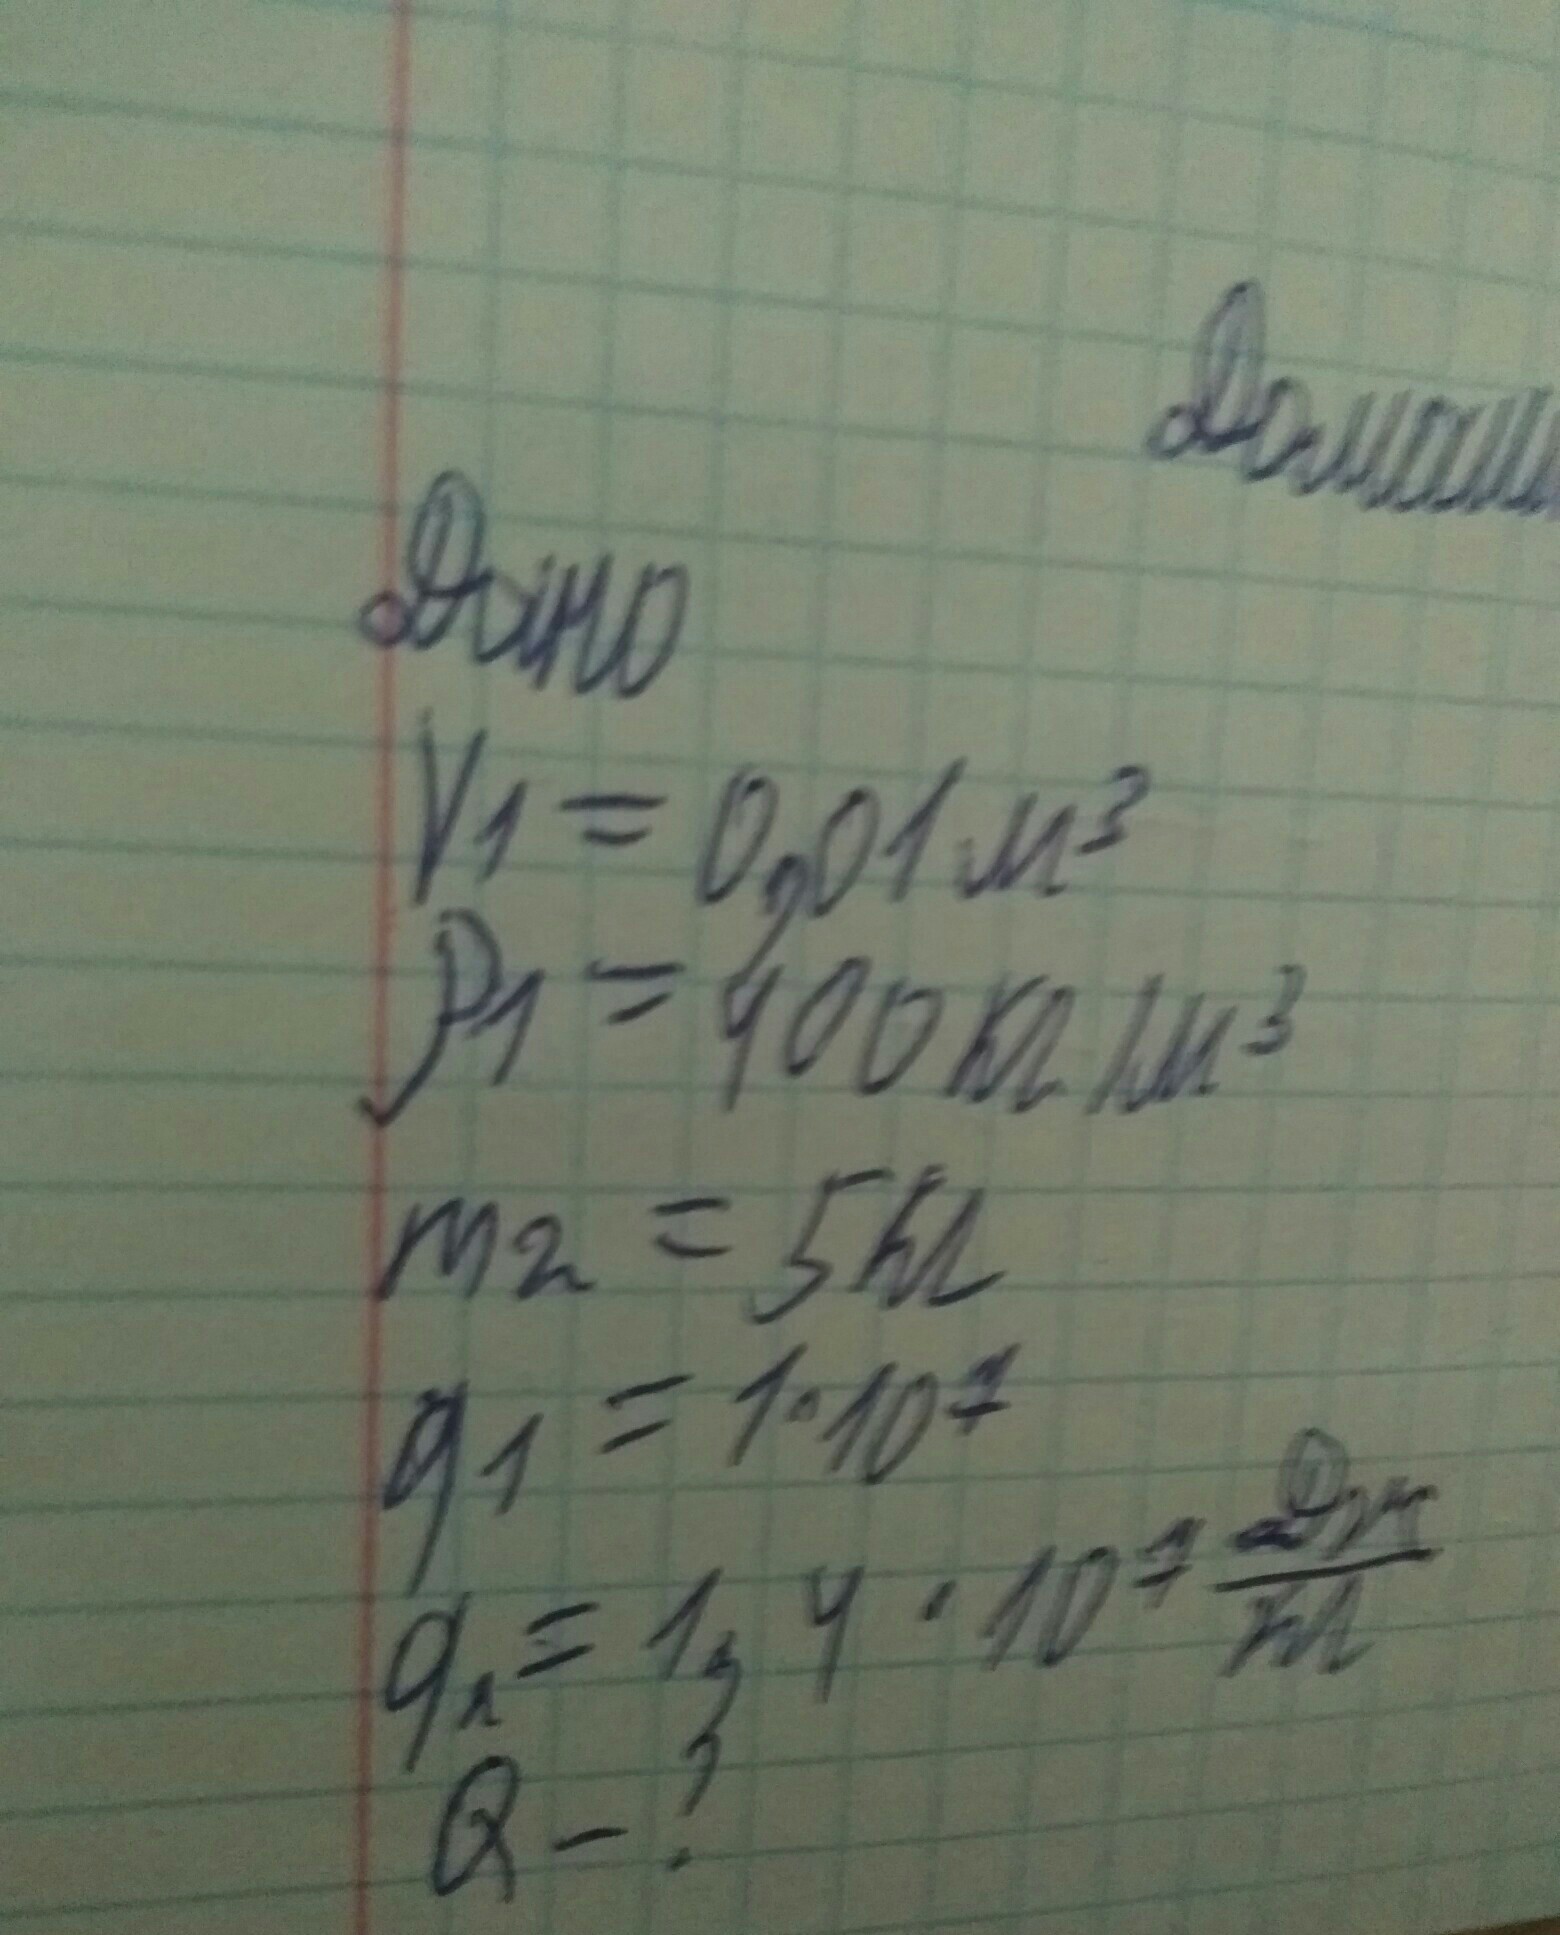 Домаш
Дано
V1 = 0,01 м³
ρ1 = 400 кг/м³
m2 = 5 кг
q1 = 1·10⁷
q2 = 1,4·10⁷ Дж/кг
Q - ?